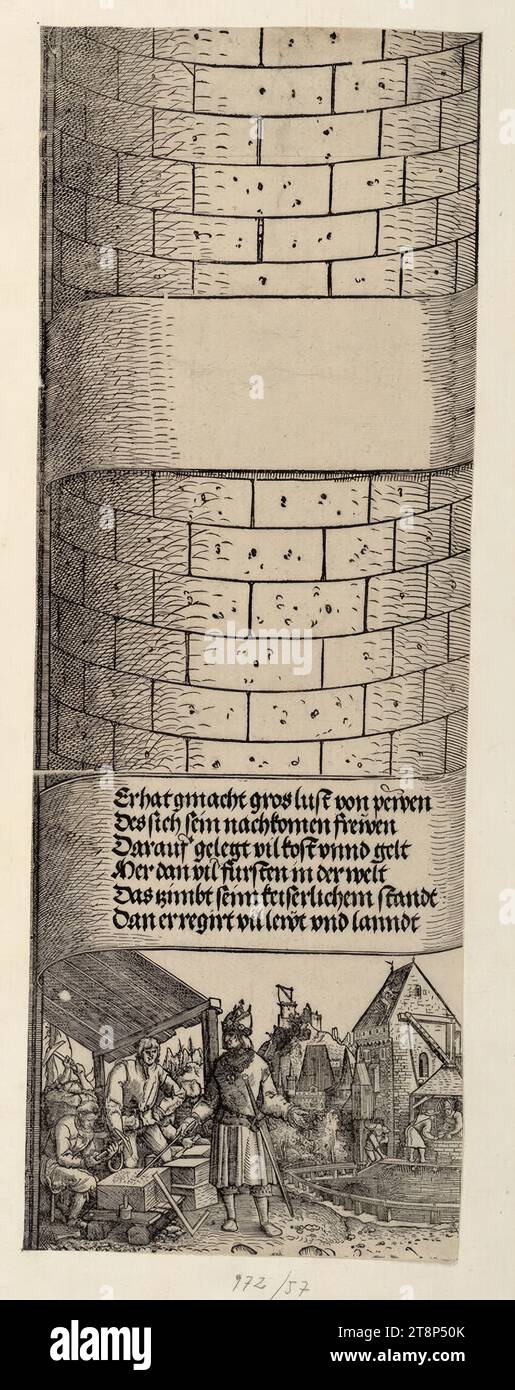 Er hat gmacht gros lust von pewen
Des sich sein nachkomen frewen
Darauf gelegt vil kost vnnd gelt
Mer dan vil fursten in der welt
Das tzimbt seim keiserlichem standt
Dan er regirt vil lewt vnd lanndt
972/57
alamy
Image ID: 2T8P50K
www.alamy.com